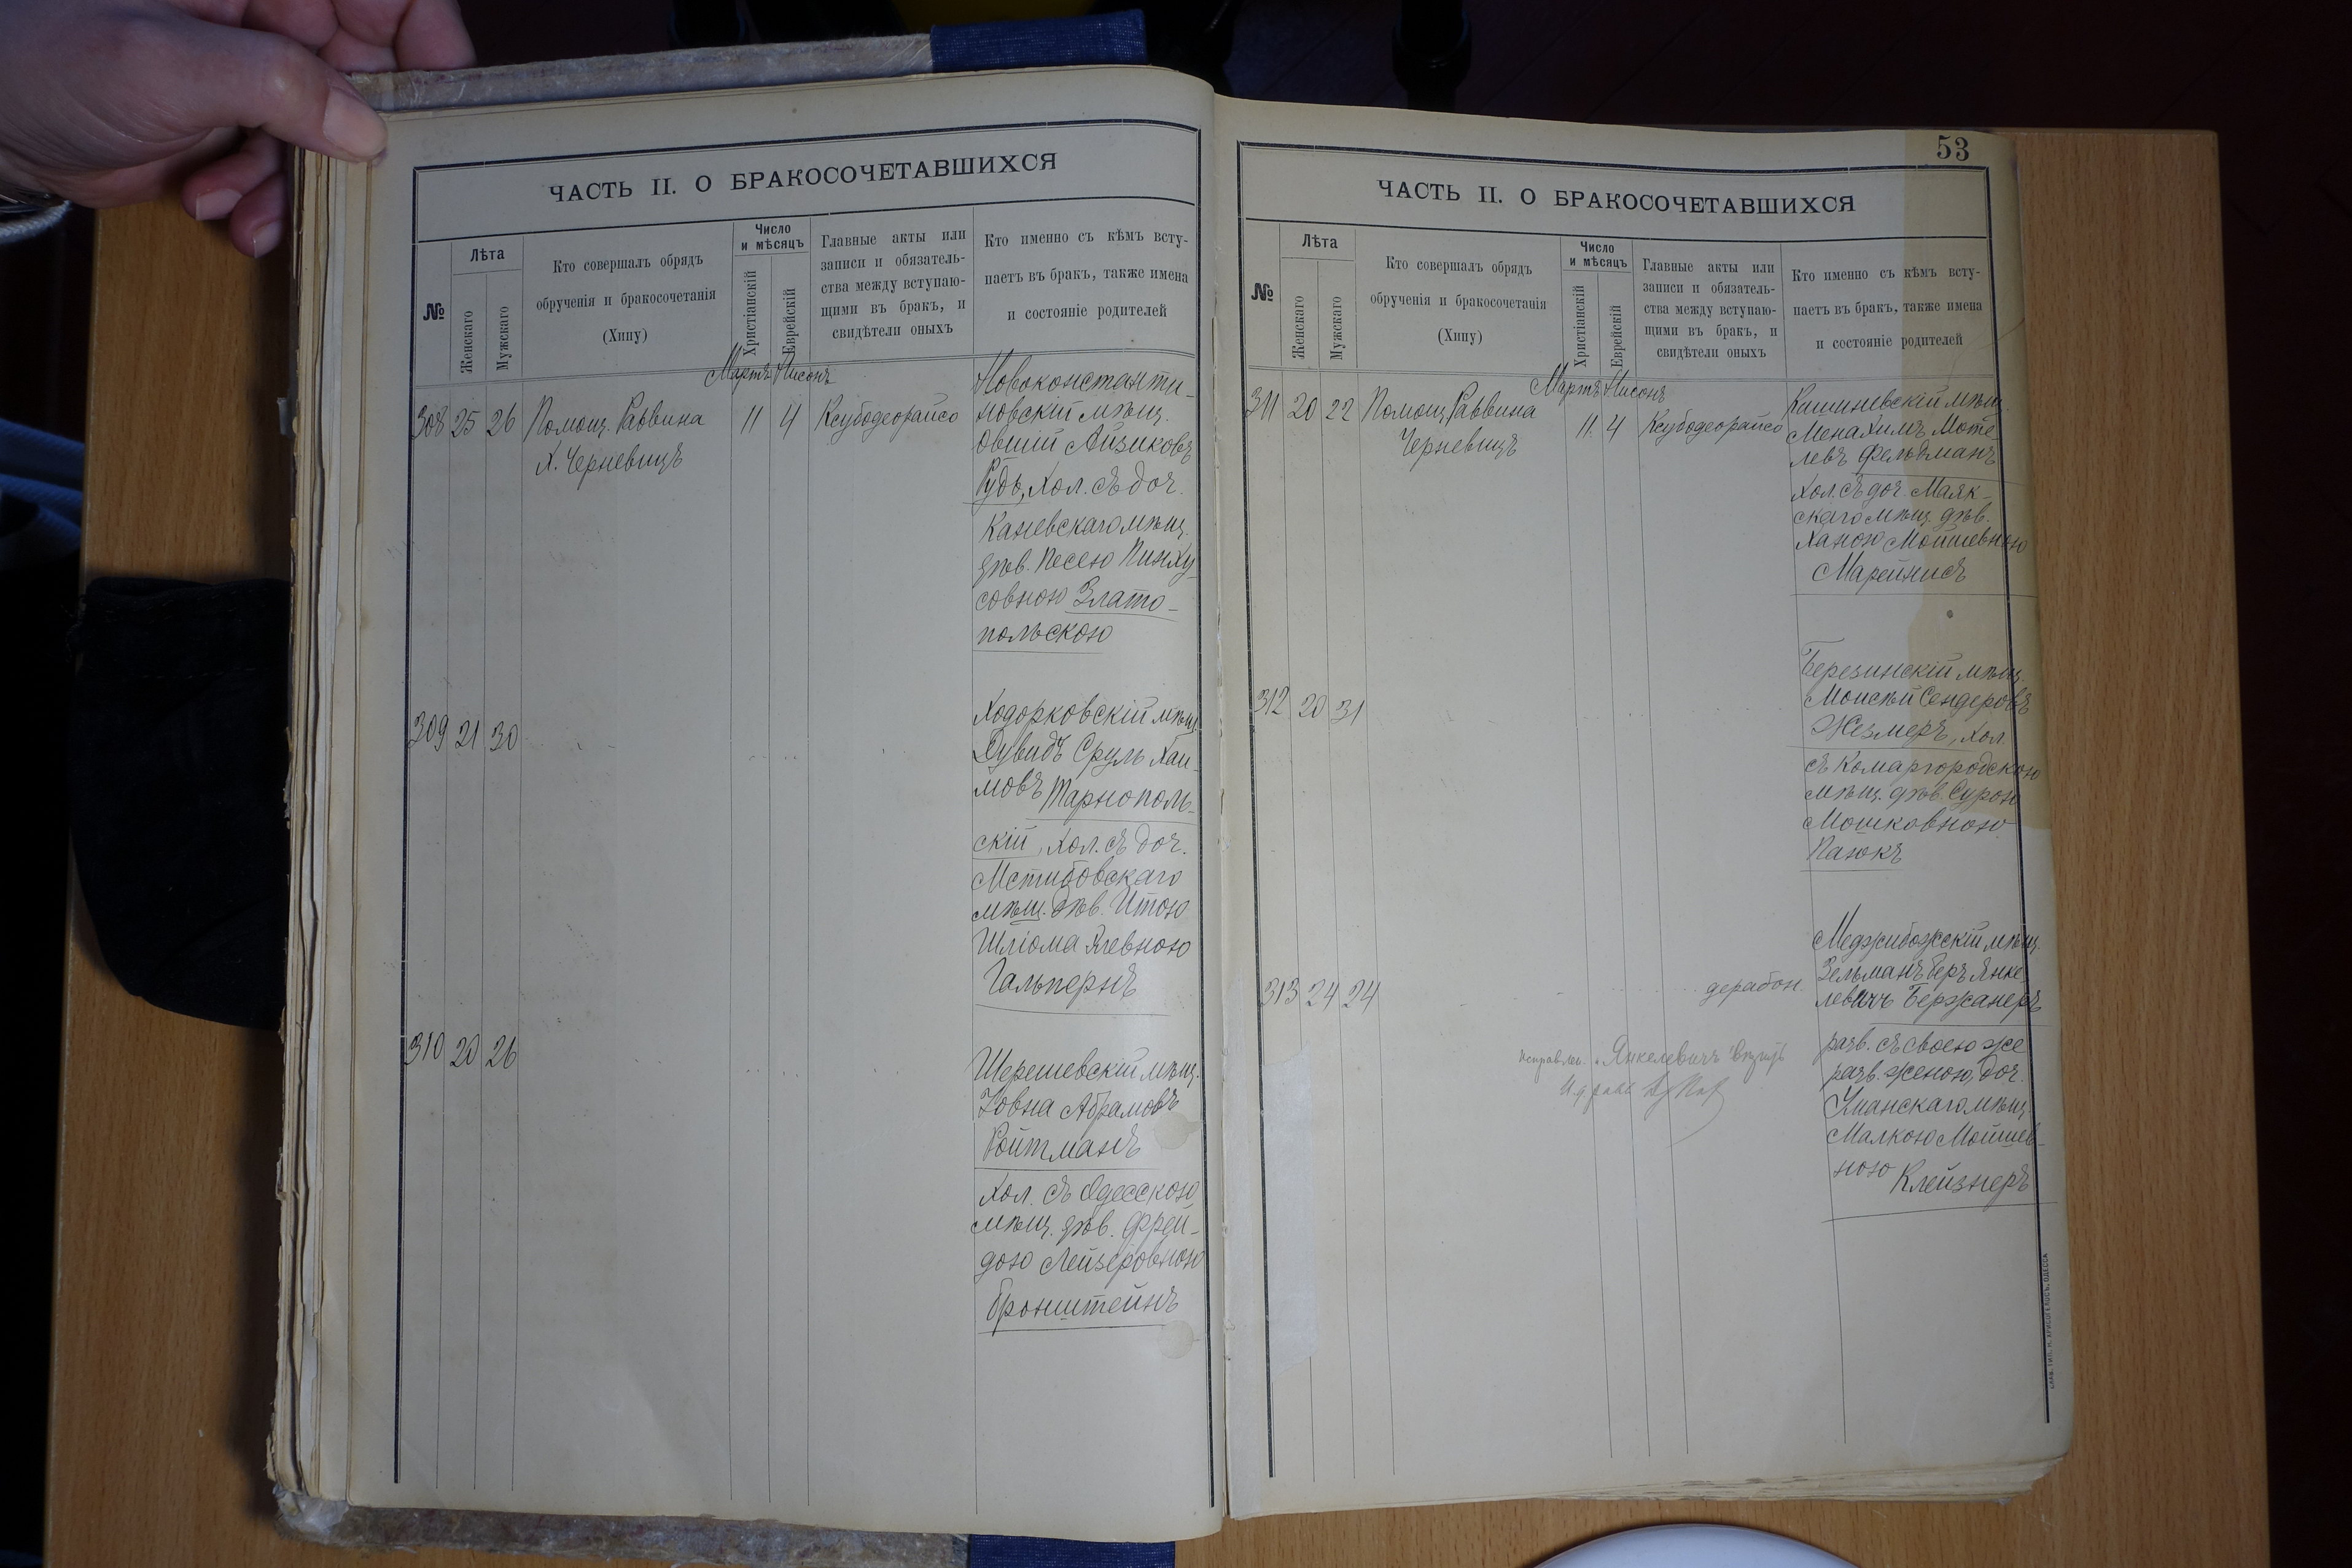 ЧАСТЬ II. О БРАКОСОЧЕТАВШИХСЯ
№
Лѣта
Женскаго
Мужскаго
Кто совершалъ обрядъ
обрученія и бракосочетанія
(Хипу)
Число
и мѣсяцъ
Христіанскій
Еврейскій
Главные акты или
записи и обязатель-
ства между вступаю-
щими въ бракъ, и
свидѣтели оныхъ
Кто именно съ кѣмъ всту-
паетъ въ бракъ, также имена
и состояніе родителей
Мартъ Нисонъ
308 25 26 Помощ. Раввина 11 4 Ксубодеорайсо
Х. Черневицъ
Новоконстанти-
новскій мѣщ.
Овшій Айзиковъ
Рудь, хол. съ доч.
Каневскаго мѣщ.
дѣв. Песею Пинху-
совною Злато-
польскою
309 21 30
Ходорковскій мѣщ.
Дувидъ Сруль Хаи-
мовъ Тарнополь-
скій, хол. съ доч.
Мстибовскаго
мѣщ. дѣв. Итою
Шліома
Гальпернъ
310 20 26
Шерешевскій мѣщ.
Іовна Абрамовъ
Ройтманъ
хол. съ Одесскою
мѣщ. дѣв. Фрей-
дою Лейзеровною
Бронштейнъ
53
ЧАСТЬ II. О БРАКОСОЧЕТАВШИХСЯ
№
Лѣта
Женскаго
Мужскаго
Кто совершалъ обрядъ
обрученія и бракосочетанія
(Хипу)
Число
и мѣсяцъ
Христіанскій
Еврейскій
Главные акты или
записи и обязатель-
ства между вступаю-
щими въ бракъ, и
свидѣтели оныхъ
Кто именно съ кѣмъ всту-
паетъ въ бракъ, также имена
и состояніе родителей
Мартъ Нисонъ
311 20 22 Помощ. Раввина 11 4 Ксубодеорайсо
Черневицъ
Кишиневскій мѣщ.
Менахимъ Моте-
левъ Фельдманъ
хол. съ доч. Маяк-
скаго мѣщ. дѣв.
Ханою Мошевною
Марейнисъ
312 20 31
Березинскій мѣщ.
Моисѣй Сендеровъ
Жезмеръ, хол.
съ Комаргородскою
мѣщ. дѣв. Сурою
Мошковною
Пазюкъ
313 24 24 дерабон.
Меджибожскій мѣщ.
Зельманъ Беръ Янке-
левичъ Бержанеръ
разв. съ своею же
разв. женою, доч.
Уманскаго мѣщ.
Малкою Мойшев-
ною Клейзнеръ
Исправлен. Янкелевичъ
СЛАВ. ТИП. Н. ХРИСОГЕЛОСЪ, ОДЕССА